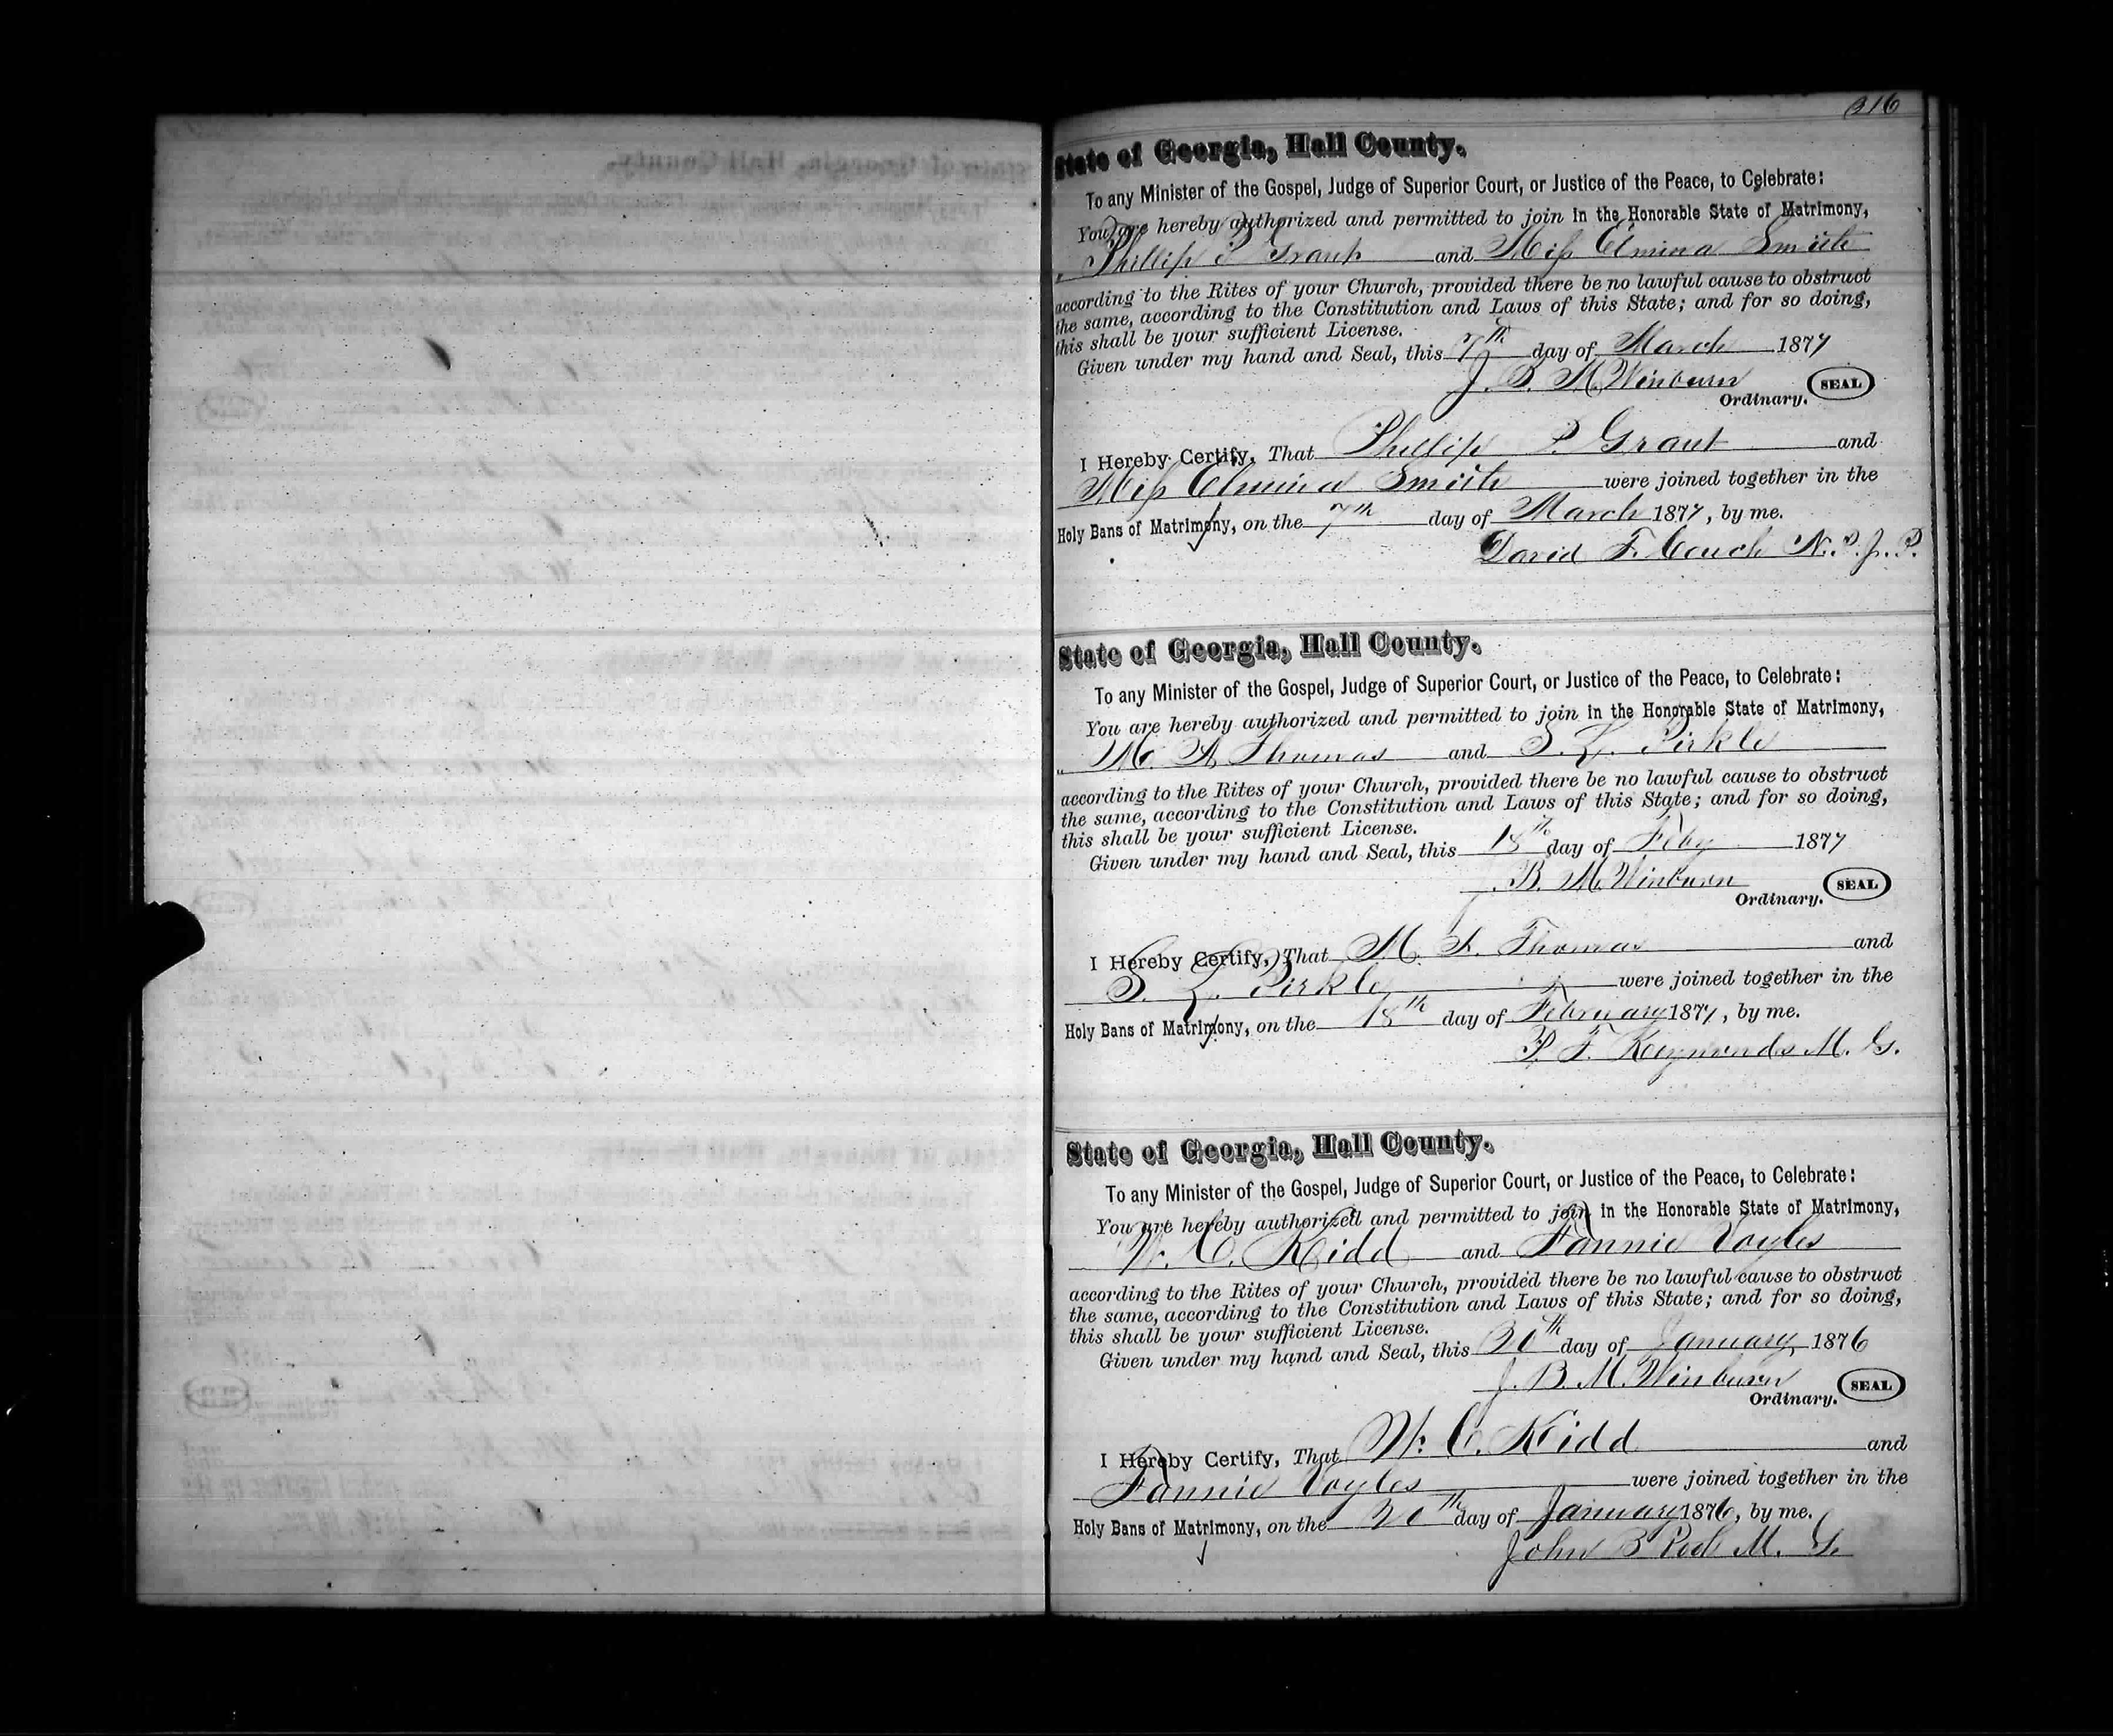 316
State of Georgia, Hall County.
To any Minister of the Gospel, Judge of Superior Court, or Justice of the Peace, to Celebrate:
You are hereby authorized and permitted to join in the Honorable State of Matrimony,
Phillip P. Grant and Miss Elmina Smith
according to the Rites of your Church, provided there be no lawful cause to obstruct
the same, according to the Constitution and Laws of this State; and for so doing,
this shall be your sufficient License.
Given under my hand and Seal, this 7th day of March 1877
J. B. M. Winburn SEAL
Ordinary.
I Hereby Certify, That Phillip P. Grant and
Miss Elmina Smith were joined together in the
Holy Bans of Matrimony, on the 7th day of March 1877, by me.
David F. Couch N. P. J. P.
State of Georgia, Hall County.
To any Minister of the Gospel, Judge of Superior Court, or Justice of the Peace, to Celebrate:
You are hereby authorized and permitted to join in the Honorable State of Matrimony,
M. Thomas and S. L. Pirkle
according to the Rites of your Church, provided there be no lawful cause to obstruct
the same, according to the Constitution and Laws of this State; and for so doing,
this shall be your sufficient License.
Given under my hand and Seal, this 18th day of Feby 1877
J. B. M. Winburn SEAL
Ordinary.
I Hereby Certify, That M. Thomas and
S. L. Pirkle were joined together in the
Holy Bans of Matrimony, on the 18th day of February 1877, by me.
P. F. Raymonds M. G.
State of Georgia, Hall County.
To any Minister of the Gospel, Judge of Superior Court, or Justice of the Peace, to Celebrate:
You are hereby authorized and permitted to join in the Honorable State of Matrimony,
W. C. Kidd and Fannie Voyles
according to the Rites of your Church, provided there be no lawful cause to obstruct
the same, according to the Constitution and Laws of this State; and for so doing,
this shall be your sufficient License.
Given under my hand and Seal, this 20th day of January, 1876
J. B. M. Winburn SEAL
Ordinary.
I Hereby Certify, That W. C. Kidd and
Fannie Voyles were joined together in the
Holy Bans of Matrimony, on the 20th day of January 1876, by me.
John B M. G.